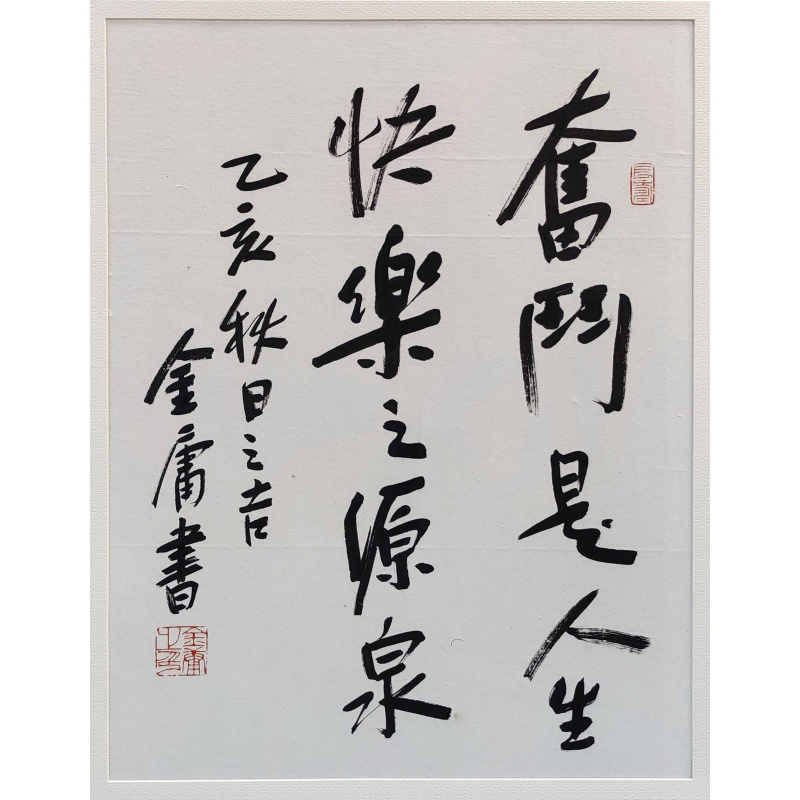 奮鬥是人生
快樂之源泉
乙亥秋日之吉
金庸書
金庸之印